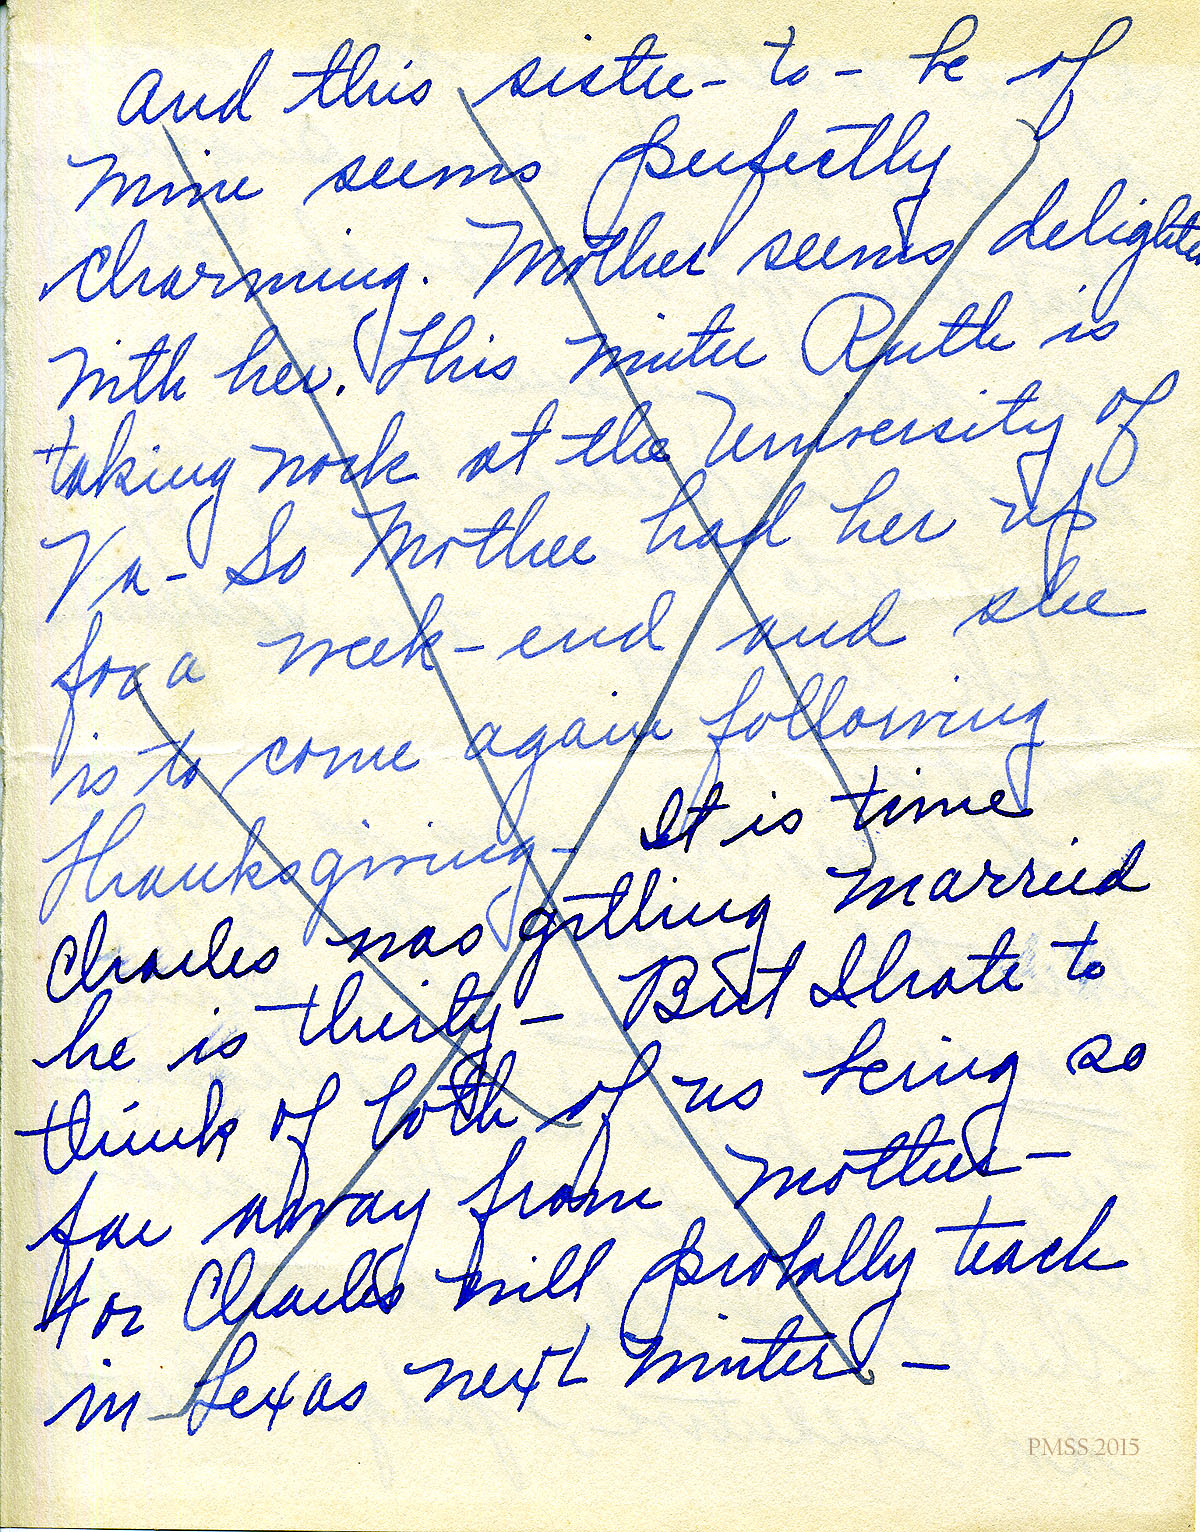 And this sister-to-be of
mine seems perfectly
charming. Mother seems delighted
with her. This winter Ruth is
taking work at the University of
Va- So Mother had her up
for a week-end and she
is to come again following
Thanksgiving- It is time
Charles was getting married
he is thirty- But I hate to
think of both of us being so
far away from Mother-
For Charles will probally teach
in Texas next winter-
PMSS 2015